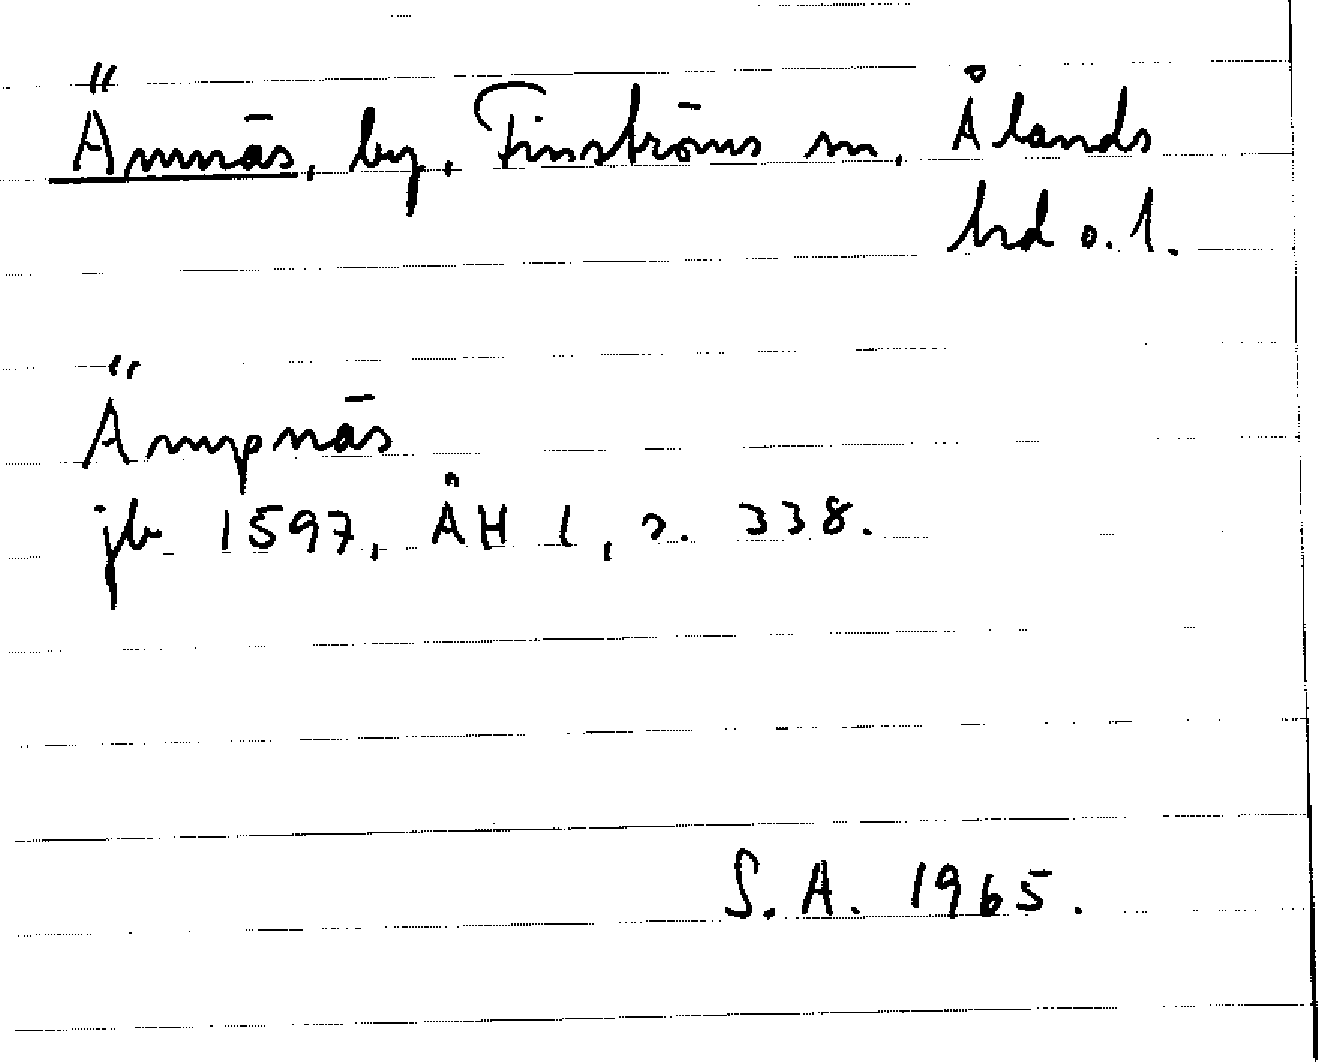 Ämnäs, by, Finströms sn, Ålands
hd o. l.
Ämpnäs
jb 1597, ÅH 1, s. 338.
S. A. 1965.